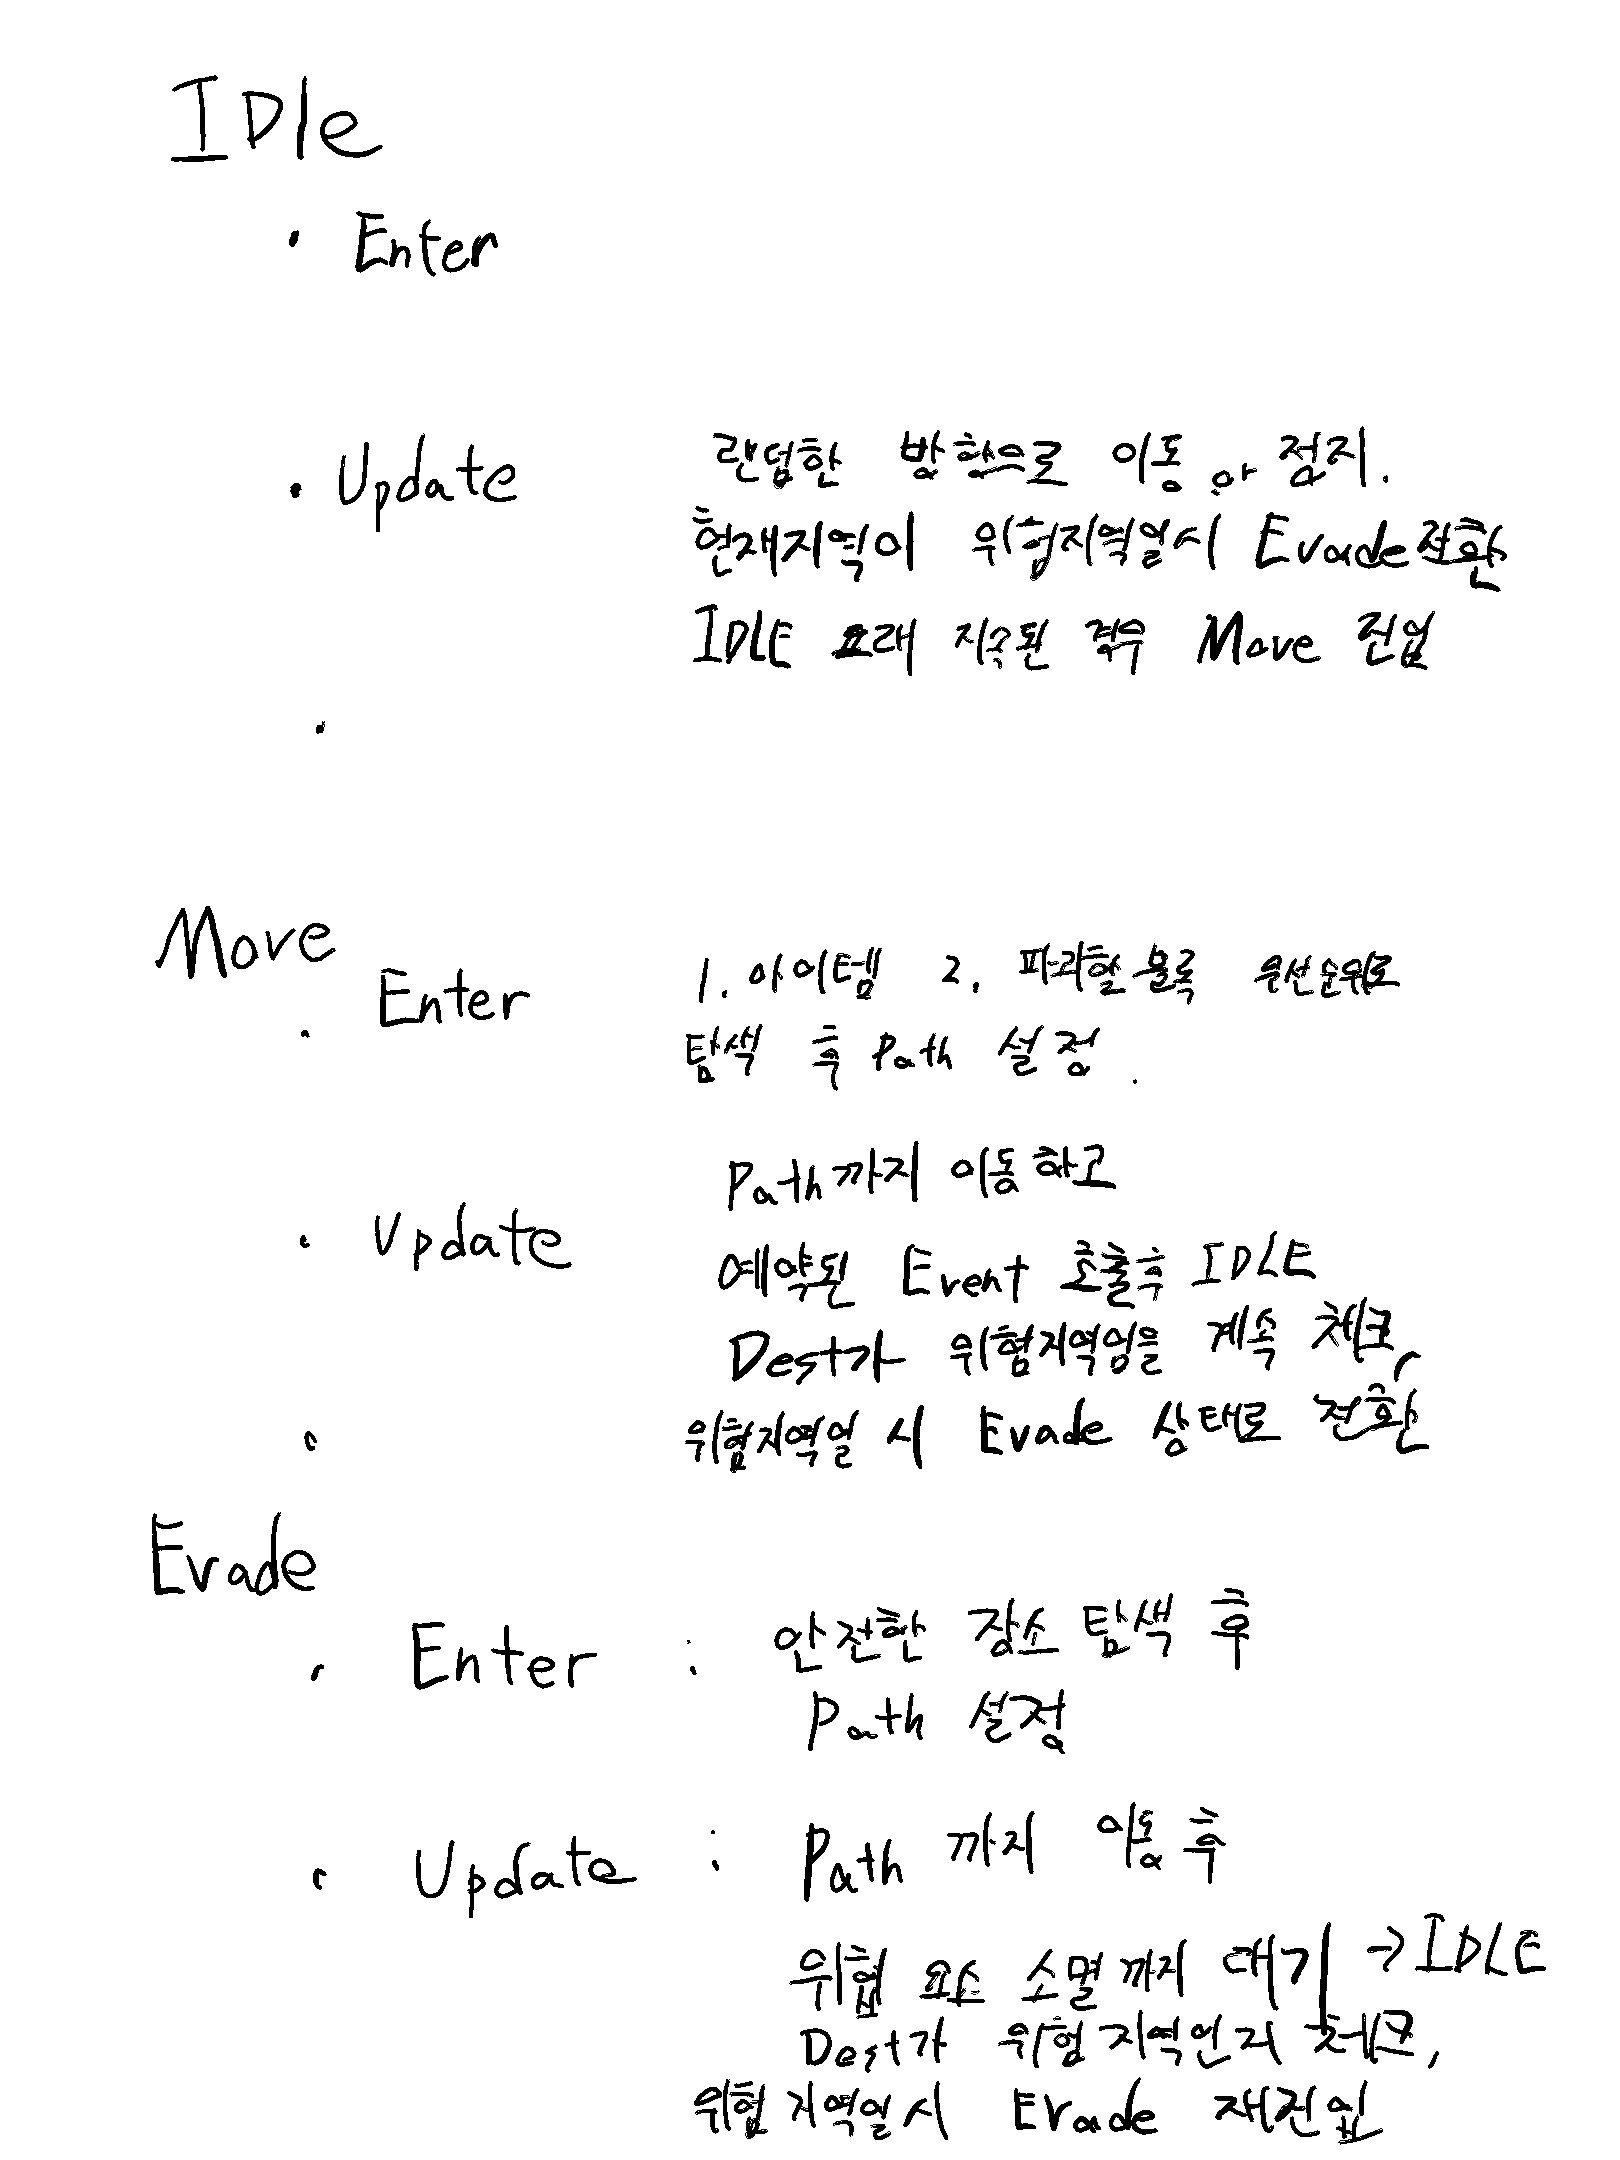 IDle
· Enter
· Update 랜덤한 방향으로 이동 or 정지.
현재지역이 위험지역일시 Evade전환
IDLE 오래 지속된 경우 Move 진입
·
Move
· Enter 1. 아이템 2. 파괴할 블록 우선순위로
탐색 후 Path 설정.
· Update Path까지 이동하고
예약된 Event 호출후 IDLE
Dest가 위험지역임을 계속 체크,
· 위험지역일 시 Evade 상태로 전환
Evade
· Enter : 안전한 장소 탐색 후
Path 설정
· Update : Path 까지 이동 후
위협 요소 소멸까지 대기 → IDLE
Dest가 위험지역인지 체크,
위험지역일시 Evade 재진입